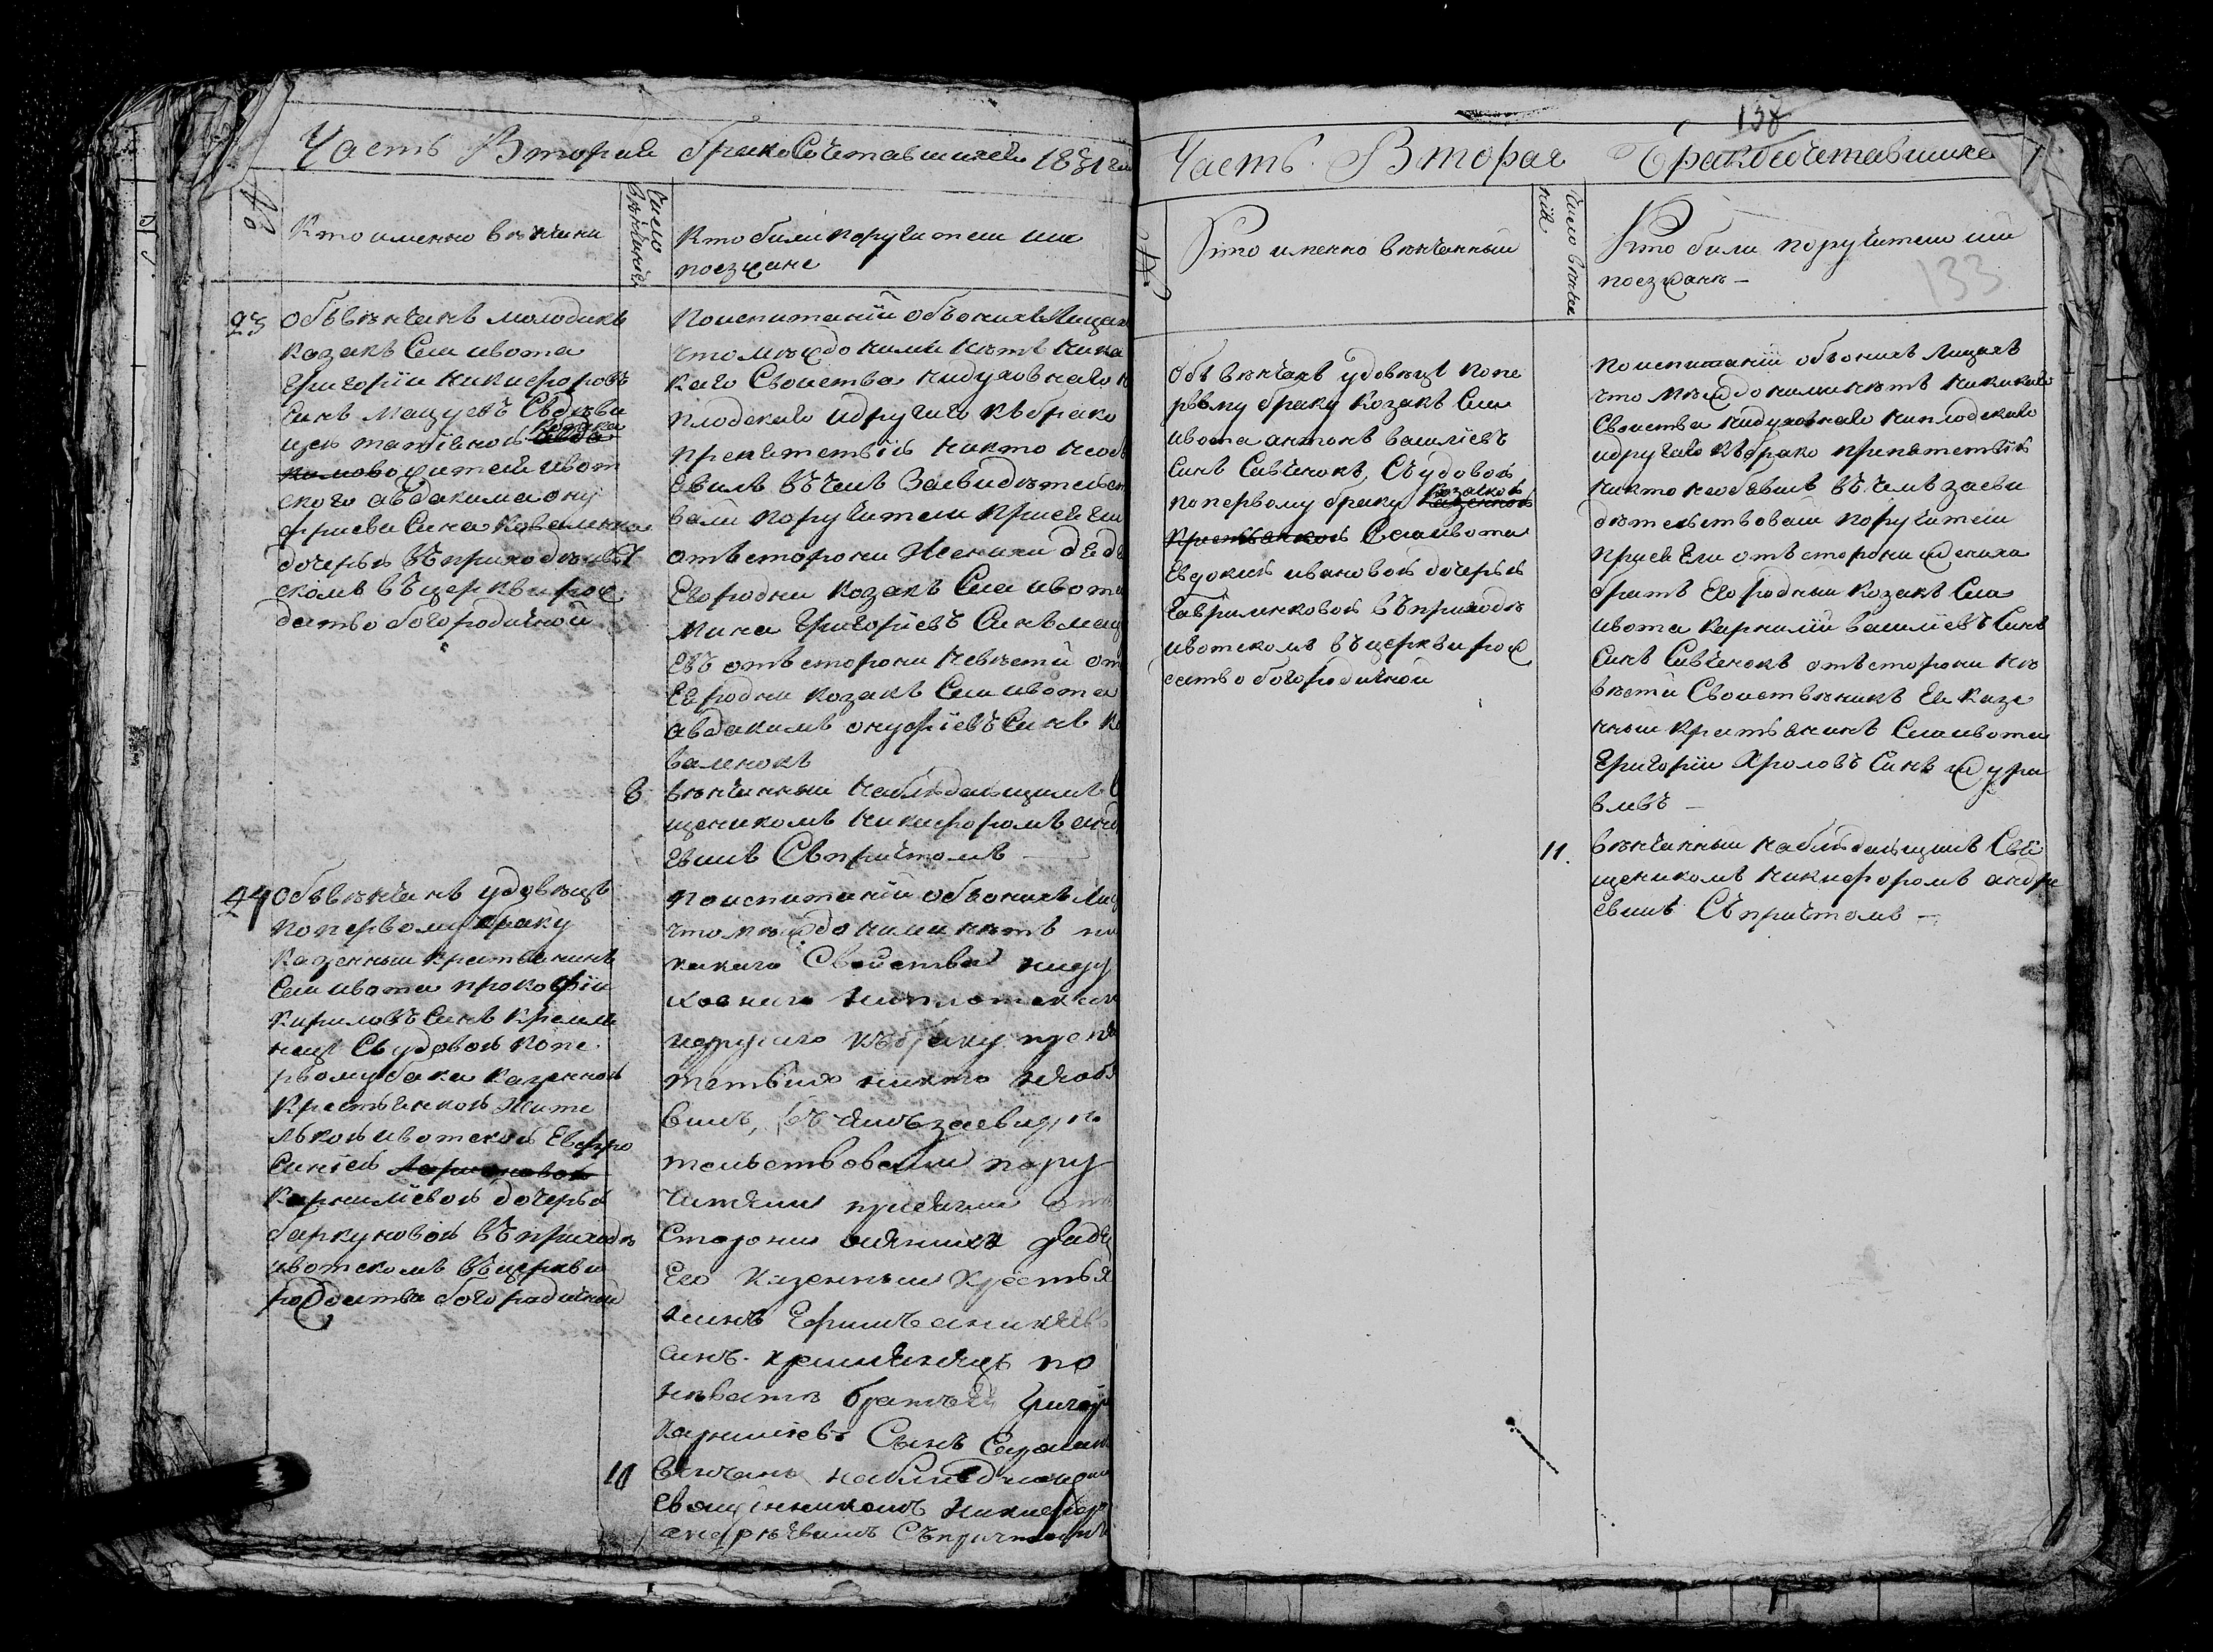 Часть Вторая бракосочетавшихся 1831 го
№
Кто именно венчани
Число венчания
Кто били поручители или
поезжане
23
Объвѣнчанъ молодикъ
козакъ Села ивота
Григорій никифоровъ
Синъ Мацуевъ Съдѣви
цею татіаною козачка
жителя ивот
ского авдакима ону
фріева Сина Коваленка
дочерью въ приходѣ ивот
скомъ въ церкви рож
дество богородичной
По испитаніи объ онихъ лицахъ
что между ними нѣтъ ника
каго Свойства нидуховнаго н
плодскаго идругаго къ брако
препятствія никто необъ
явилъ въ чемъ Засвидѣтельст
вали поручители приехали
отъ сторони Жениха дядя
Его родни козакъ Села ивота
мина Григоріевъ Синъ мацу
евъ отъ сторони невѣсти от
Ея родни козакъ Села ивота
авдакимъ онуфріевъ Синъ Ко
валенокъ
8 вѣнчанный наблюдающимъ С
щеникомъ никифоромъ андр
евимъ Съ причтомъ
44
Объвѣнчанъ удовецъ
по первому браку
казенный крестьянинъ
Села ивота прокофій
Кириловъ Синъ Кремля
нецъ Съ удовою по пе
рвому брака казенною
Крестьянкою Жите
лькою ивотскою Евфро
синіею Ларионовою
Карниліевою дочерью
баркуновою въ приходѣ
ивотскомъ въ церкви
рождества богородичной
По испитаніи объ онихъ лиц
что между ними нѣтъ ни
какаго Свойства ниду
ховнаго ниплотскаго
идругаго къ браку препя
тствия никто необъя
вилъ, въ чемъ засвидѣ
тельствовали пору
чители приехали отъ
Сторони жениха дядя
Его казенный крестья
нинъ
синъ. кремлянецъ по
невѣсти братъ Ея Григорій
Карниліевъ Сынъ
10 вѣнчанъ наблюдающимъ
священникомъ Никифоро
андрѣевимъ Съ причтомъ
138
Часть Вторая Бракосочетавшихся
№
Кто именно вѣнчанный
Число вѣнчания
Кто били поручители или
поезжанѣ —
133
Объвѣнчанъ удовецъ по пе
рвому браку Козакъ Села
ивота антонъ василіевъ
Синъ Савченокъ, Съ удовою
по первому браку козачкою казенною
крестьянкою Села ивота
Евдокией ивановою дочерью
Гавриленковою въ приходѣ
ивотскомъ въ церкви рож
дество богородичной
По испитаніи объ онихъ лицахъ
что между ними нѣтъ никакаго
Свойства нидуховнаго ниплодскаго
идругаго къ брако препятствія
никто необъявилъ въ чемъ засви
дѣтельствовали поручители
приехали отъ сторони жениха
братъ Его родный козакъ Села
ивота карнилій василіевъ Синъ
Синъ Савченокъ отъ сторони не
вѣсти Свойственникъ Ея казе
нный крестьянинъ Села ивота
Григорій Хроловъ Синъ жура
влевъ —
11. вѣнчанный наблюдающимъ Свя
щеникомъ никифоромъ андре
евимъ Съ причтомъ —